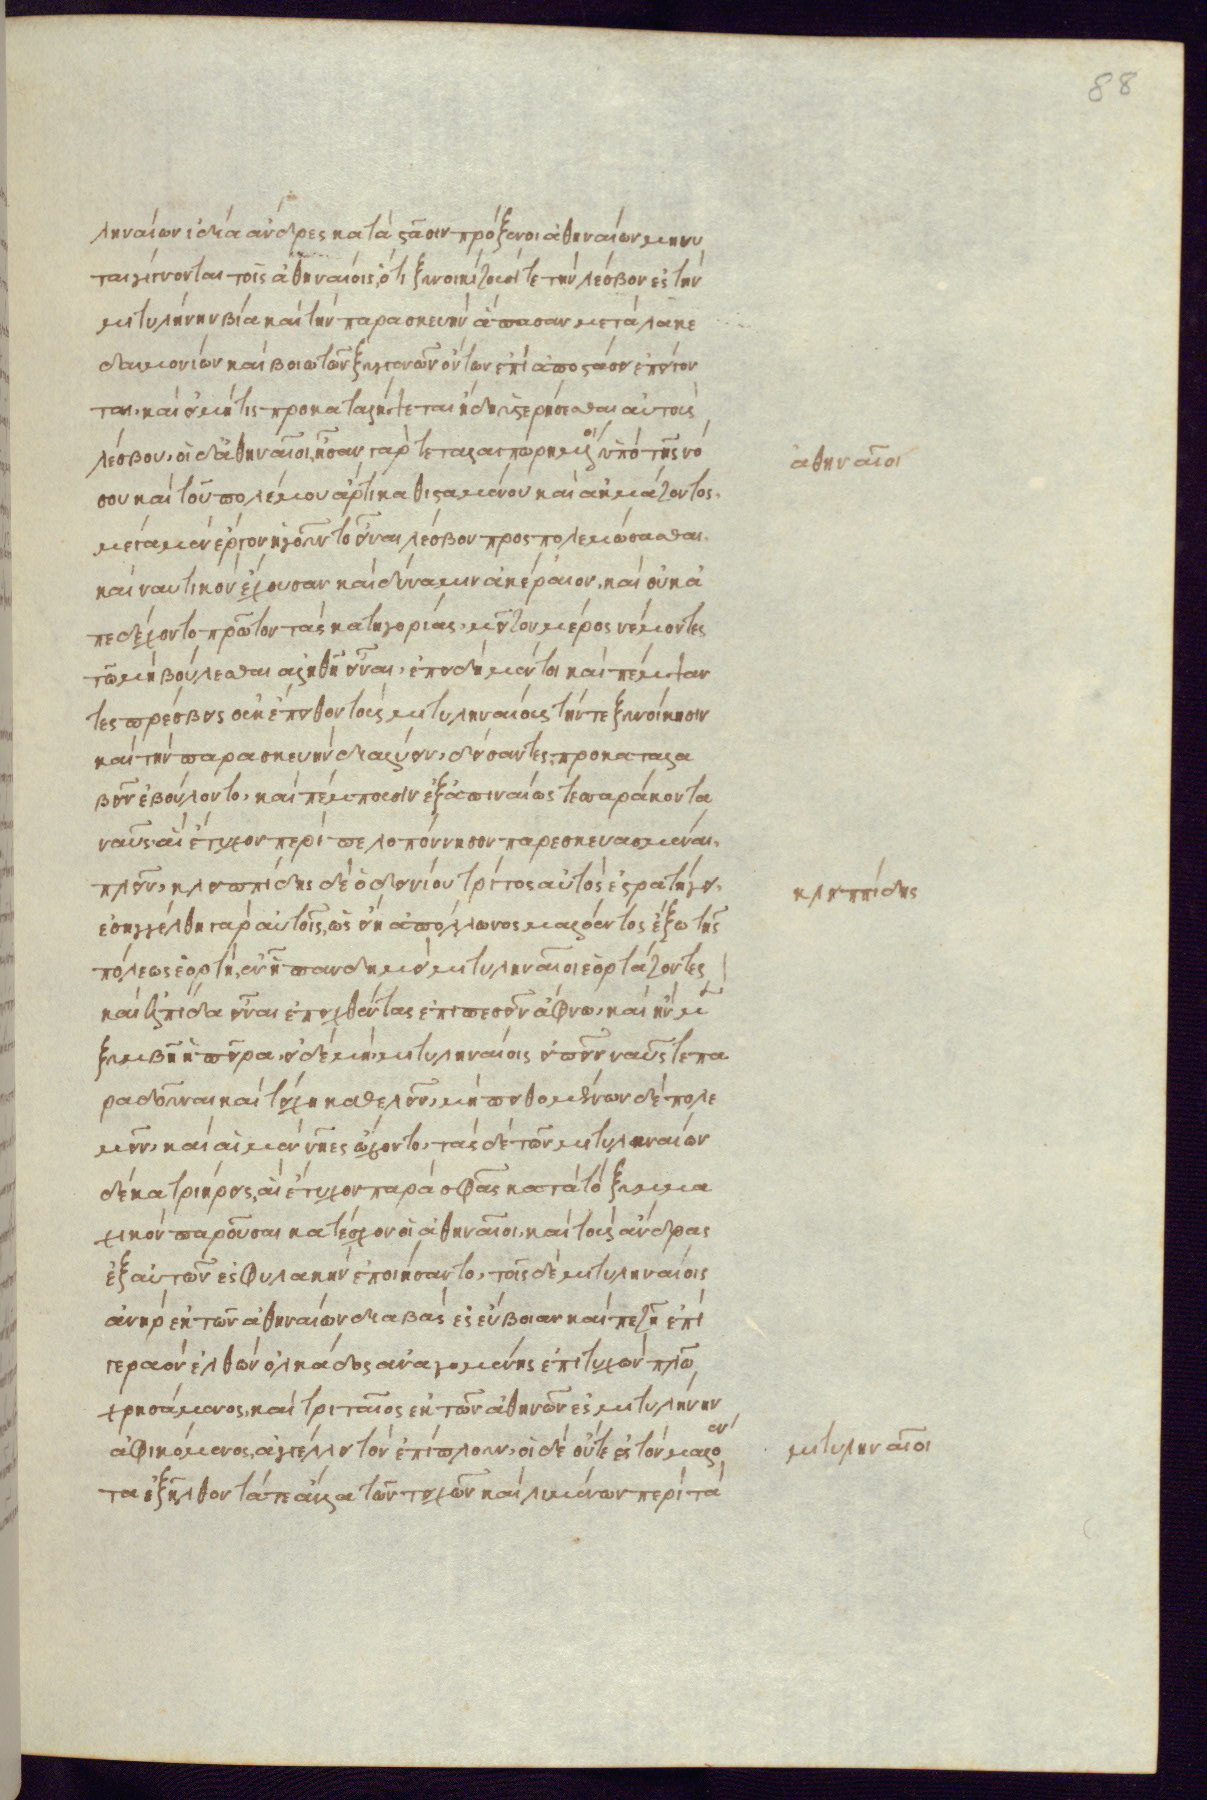 88
ληναίων ἰδία ἄνδρες κατὰ στάσιν πρόξενοι ἀθηναίων μηνυ
ταὶ γίγνονται τοῖς ἀθηναίοις, ὅτι ξυνοικίζουσί τε τὴν λέσβον ἐς τὴν
μιτυλήνην βία καὶ τὴν παρασκευὴν ἅπασαν μετὰ λακε
δαιμονίων καὶ βοιωτῶν ξυγγενῶν ὄντων ἐπὶ ἀποστάσει ἐπείγον
ται· καὶ εἰ μή τις προκαταλήψεται ἤδη στερήσεσθαι αὐτοὺς
λέσβου· οἱ δ' ἀθηναῖοι, ἦσαν γὰρ τεταλαιπωρημένοι ὑπὸ τῆς νό
σου καὶ τοῦ πολέμου ἄρτι καθισταμένου καὶ ἀκμάζοντος·
μέγα μὲν ἔργον ἡγοῦντο εἶναι λέσβον προσπολεμώσασθαι·
καὶ ναυτικὸν ἔχουσαν καὶ δύναμιν ἀκέραιον· καὶ οὐκ ἀ
πεδέχοντο πρῶτον τὰς κατηγορίας· μεῖζον μέρος νέμοντες
τῶ μὴ βούλεσθαι ἀληθῆ εἶναι· ἐπειδὴ μέντοι καὶ πέμψαν
τες πρέσβεις οὐκ ἔπειθον τοὺς μιτυληναίους τήν τε ξυνοίκησιν
καὶ τὴν παρασκευὴν διαλύειν· δείσαντες, προκαταλα
βεῖν ἐβούλοντο· καὶ πέμπουσιν ἐξαπιναίως τεσσαράκοντα
ναῦς αἳ ἔτυχον περὶ πελοπόννησον παρεσκευασμέναι·
πλεῖν· κλεϊππίδης δὲ ὁ δεινίου τρίτος αὐτὸς ἐστρατήγει·
ἐσηγγέλθη γὰρ αὐτοῖς, ὡς εἴη ἀπόλλωνος μαλόεντος ἔξω τῆς
πόλεως ἑορτή, ἐν ἧ πανδημεὶ μιτυληναῖοι ἑορτάζουσι
καὶ ἐλπίδα εἶναι ἐπειχθέντας ἐπιπεσεῖν ἄφνω· καὶ ἢν μὲν
ξυμβῆ ἡ πεῖρα· εἰ δὲ μὴ, μιτυληναίοις εἰπεῖν ναῦς τε πα
ραδοῦναι καὶ τείχη καθελεῖν· μὴ πειθομένων δὲ πολε
μεῖν· καὶ αἱ μὲν νῆες ᾤχοντο· τὰς δὲ τῶν μιτυληναίων
δέκα τριήρεις, αἳ ἔτυχον παρὰ σφᾶς κατὰ τὸ ξυμμα
χικὸν παροῦσαι κατέσχον οἱ ἀθηναῖοι· καὶ τοὺς ἄνδρας
ἐξ αὐτῶν ἐς φυλακὴν ἐποιήσαντο· τοῖς δὲ μιτυληναίοις
ἀνὴρ ἐκ τῶν ἀθηναίων διαβὰς ἐς εὔβοιαν καὶ πεζῆ ἐπὶ
γεραιστὸν ἐλθὼν ὁλκάδος ἀναγομένης ἐπιτυχὼν πλῶ
χρησάμενος, καὶ τριταῖος ἐκ τῶν ἀθηνῶν ἐς μιτυλήνην
ἀφικόμενος, ἀγγέλλει τὸν ἐπίπλουν· οἱ δὲ οὔτε ἐς τὸν μαλόεν
τα ἐξῆλθον τά τε ἄλλα τῶν τειχῶν καὶ λιμένων περὶ τὰ
ἀθηναῖοι
κλεϊππίδης
μιτυληναῖοι